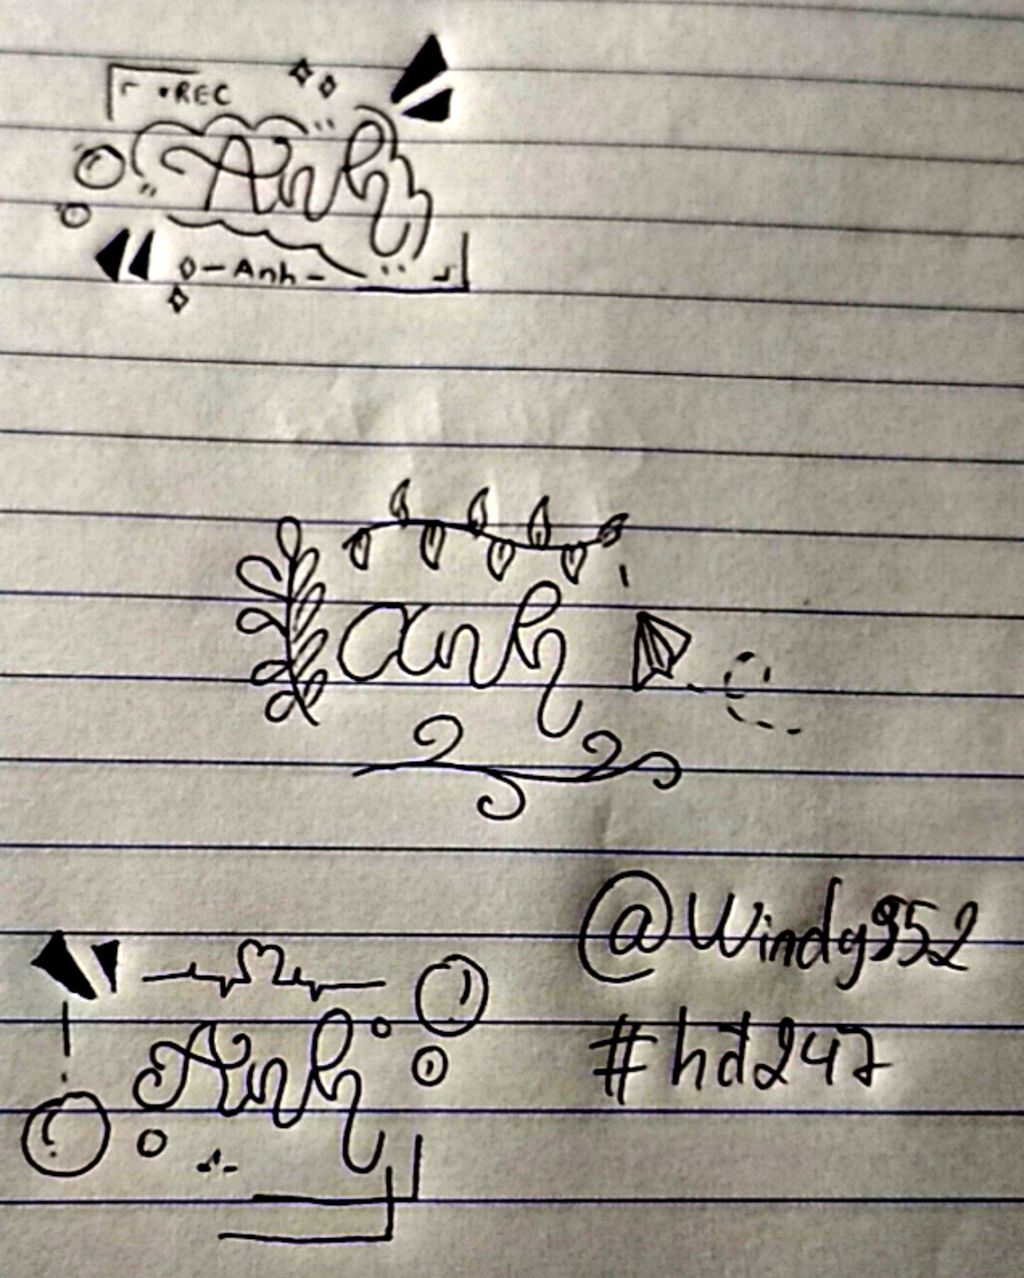 •REC
Anh
-Anh-
anh
@Windy952
Anh
#hd247